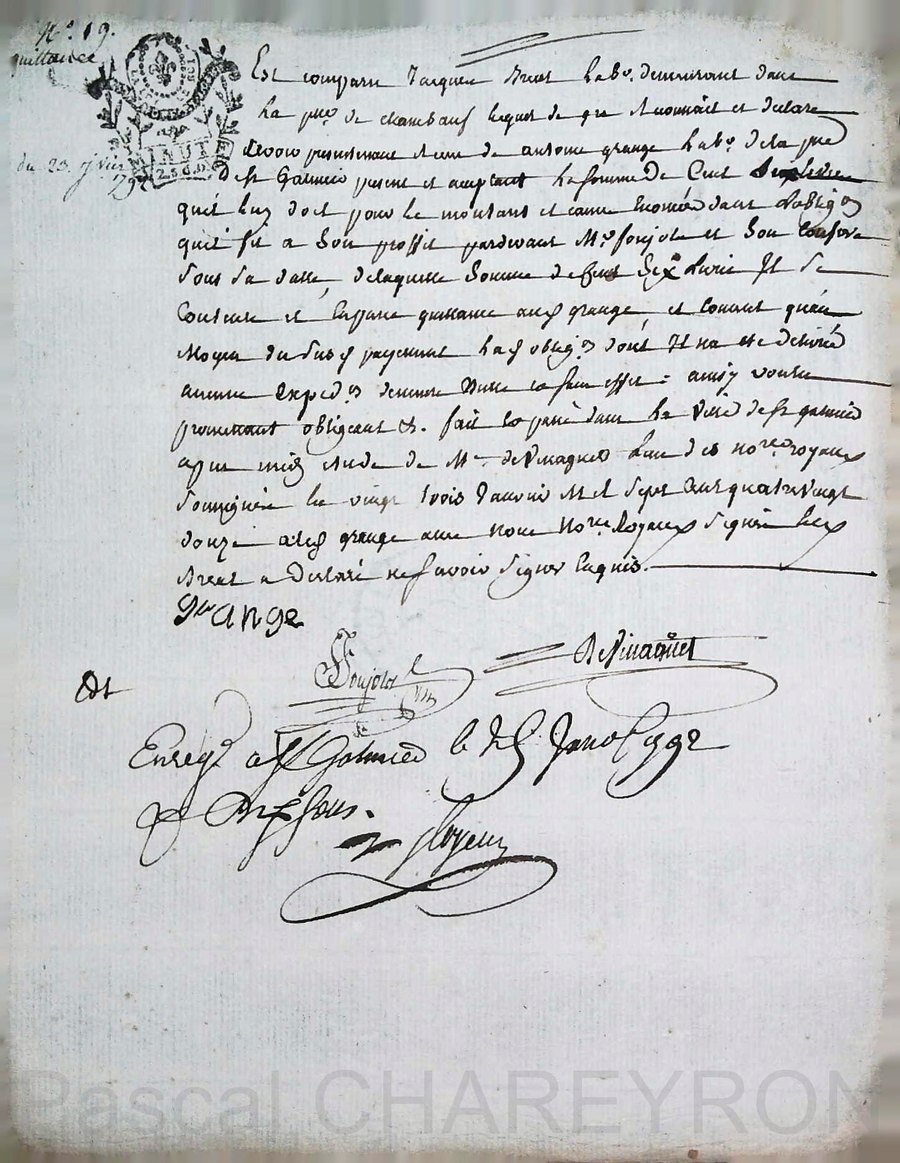 N.° 19.
quittance
du 23 jvier
1792
Est comparu Jacques Breat Labr. demeurant dans
La psse. de chambeuf lequel de gre Reconnait et declare
avoir presentement Recu de antoine grange Labr. de la psse
de st Galmier present et acceptant La somme De Cent Six Livres
quil luy doit pour le montant et cause Enoncée dans Lobligon
quil fit a Son proffit pardevant Me. foujols et Son Confrere
Sous Sa datte, de laquelle Somme de Cent Six Livres Il Se
Contente et En passe quittance aud grange et Consent quau
Moyen du Susd payement Lad obligon dont Il na ete delivré
aucune Expedon demeure Nulle et Sans effet: ainsy voulu
promettant obligeant &. fait Et passé dans La Ville de st galmier
apres midy etude de Me. deVinaques Lun des nores royaux
Soussignés le vingt trois Janvier Mil Sept Cent quatrevingt
douze a led grange avec Nous Nores Royaux Signé led
Breat a Declaré ne Savoir Signer Enquis.
grange
Foujols
DeVinaques
Enregé a St Galmier le Janv 1792
R sous.
MINUT
Pascal CHAREYRON